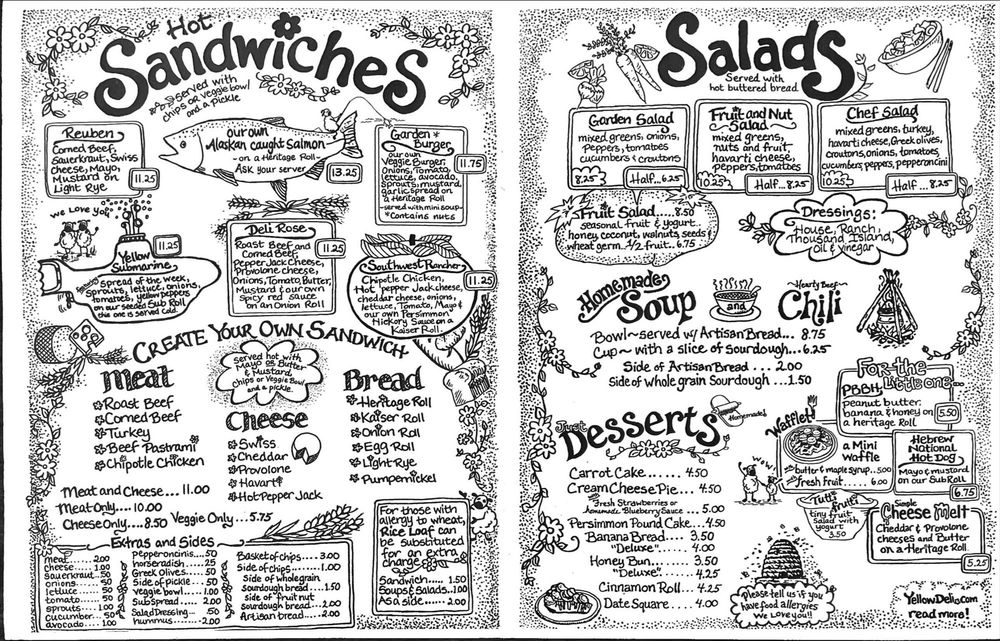 Hot
Sandwiches
served with
chips or veggie bowl
and a pickle
Reuben
Corned Beef,
Sauerkraut, Swiss
Cheese, Mayo,
Mustard on
Light Rye
11.25
our own
Alaskan caught Salmon
- on a Heritage Roll -
Ask your server
13.25
Garden *
Burger
our own
Veggie Burger
Onions, Tomato,
lettuce, avocado,
Sprouts, mustard,
garlic spread on
a Heritage Roll
-served with mini soup-
*Contains nuts
11.75
we Love you
11.25
Yellow
Submarine
Spread of the week,
Sprouts, lettuce, onions,
tomatoes, yellow peppers
on our seeded Sub Roll
this one is served cold.
Deli Rose
Roast Beef and
Corned Beef,
Pepper Jack Cheese,
Provolone cheese,
Onions, Tomato, Butter,
Mustard & our own
spicy red sauce
on an Onion Roll
11.25
Southwest Rancher
Chipotle Chicken,
Hot pepper Jack cheese,
cheddar cheese, onions,
lettuce, Tomato, Mayo &
our own Persimmon
Hickory Sauce on a
Kaiser Roll.
11.25
CREATE YOUR OWN SANDWICH
served hot with
Mayo or Butter
& Mustard,
chips or Veggie Bowl
and a pickle.
Meat
Roast Beef
Corned Beef
Turkey
Beef Pastrami
Chipotle Chicken
Cheese
Swiss
Cheddar
Provolone
Havarti
Hot Pepper Jack
Bread
Heritage Roll
Kaiser Roll
Onion Roll
Egg Roll
Light Rye
Pumpernickel
Meat and Cheese... 11.00
Meat Only.... 10.00
Cheese Only...8.50 Veggie Only...5.75
Extras and Sides
meat..... 2.00
cheese..... 1.00
sauerkraut..50
onions..... 50
lettuce..... 50
tomato..... 50
sprouts.... 1.00
cucumber.. 1.00
avocado.. 1.00
Pepperoncinis... 50
horseradish.... 25
Greek Olives... 50
Side of pickle... 50
veggie bowl... 1.00
Sub Spread... 2.00
Salad Dressing.. .50
hummus.... 2.00
Basket of chips.... 3.00
Side of chips..... 1.00
Side of wholegrain
sourdough bread... 1.50
side of fruit nut
sourdough bread... 2.00
Artisan bread.... 2.00
For those with
allergy to wheat,
Rice Loaf can
be substituted
for an extra
charge
Sandwich.... 1.50
Soups & Salads..1.00
As a side..... 2.00
Salads
Served with
hot buttered bread
Garden Salad
mixed greens, onions,
Peppers, tomatoes
cucumbers & croutons
8.25
Half...6.25
Fruit and Nut
Salad
mixed greens,
nuts and fruit,
havarti cheese,
peppers, tomatoes
10.25
Half...8.25
Chef Salad
mixed greens, turkey,
havarti cheese, Greek olives,
croutons, onions, tomatoes,
cucumbers, peppers, pepperoncini
10.25
Half... 8.25
Fruit Salad.....8.50
seasonal fruit & yogurt
honey, coconut, walnuts, seeds,
wheat germ. 1/2 fruit.. 6.75
Dressings:
House, Ranch,
Thousand Island,
oil & vinegar
Homemade
Soup
and
~Hearty Beef~
Chili
Bowl ~ served w/ Artisan Bread... 8.75
Cup ~ with a slice of Sourdough...6.25
Side of Artisan Bread . . . 2.00
Side of whole grain Sourdough ...1.50
Just
Desserts
Homemade!
Carrot Cake...... 4.50
Cream Cheese Pie... 4.50
fresh Strawberries or
homemade Blueberry Sauce ... 5.00
Persimmon Pound Cake... 4.50
Banana Bread.... 3.50
"Deluxe".... 4.00
Honey Bun...... 3.50
"Deluxe".... 4.25
Cinnamon Roll .... 4.25
Date Square .... 4.00
For the
Little one...
PBBH
peanut butter,
banana & honey on
a heritage Roll
5.50
Waffle!!
a Mini
Waffle
butter & maple syrup..5.00
fresh Fruit...... 6.00
Hebrew
National
Hot Dog
Mayo & mustard
on our Sub Roll
6.75
WOW!
Tutti fruiti
tiny fruit
salad with
yogurt
3.50
Simple
Cheese Melt
Cheddar & Provolone
cheeses and Butter
on a Heritage Roll
5.25
Please tell us if you
have food allergies
We Love you!!
YellowDeli.com
read more!